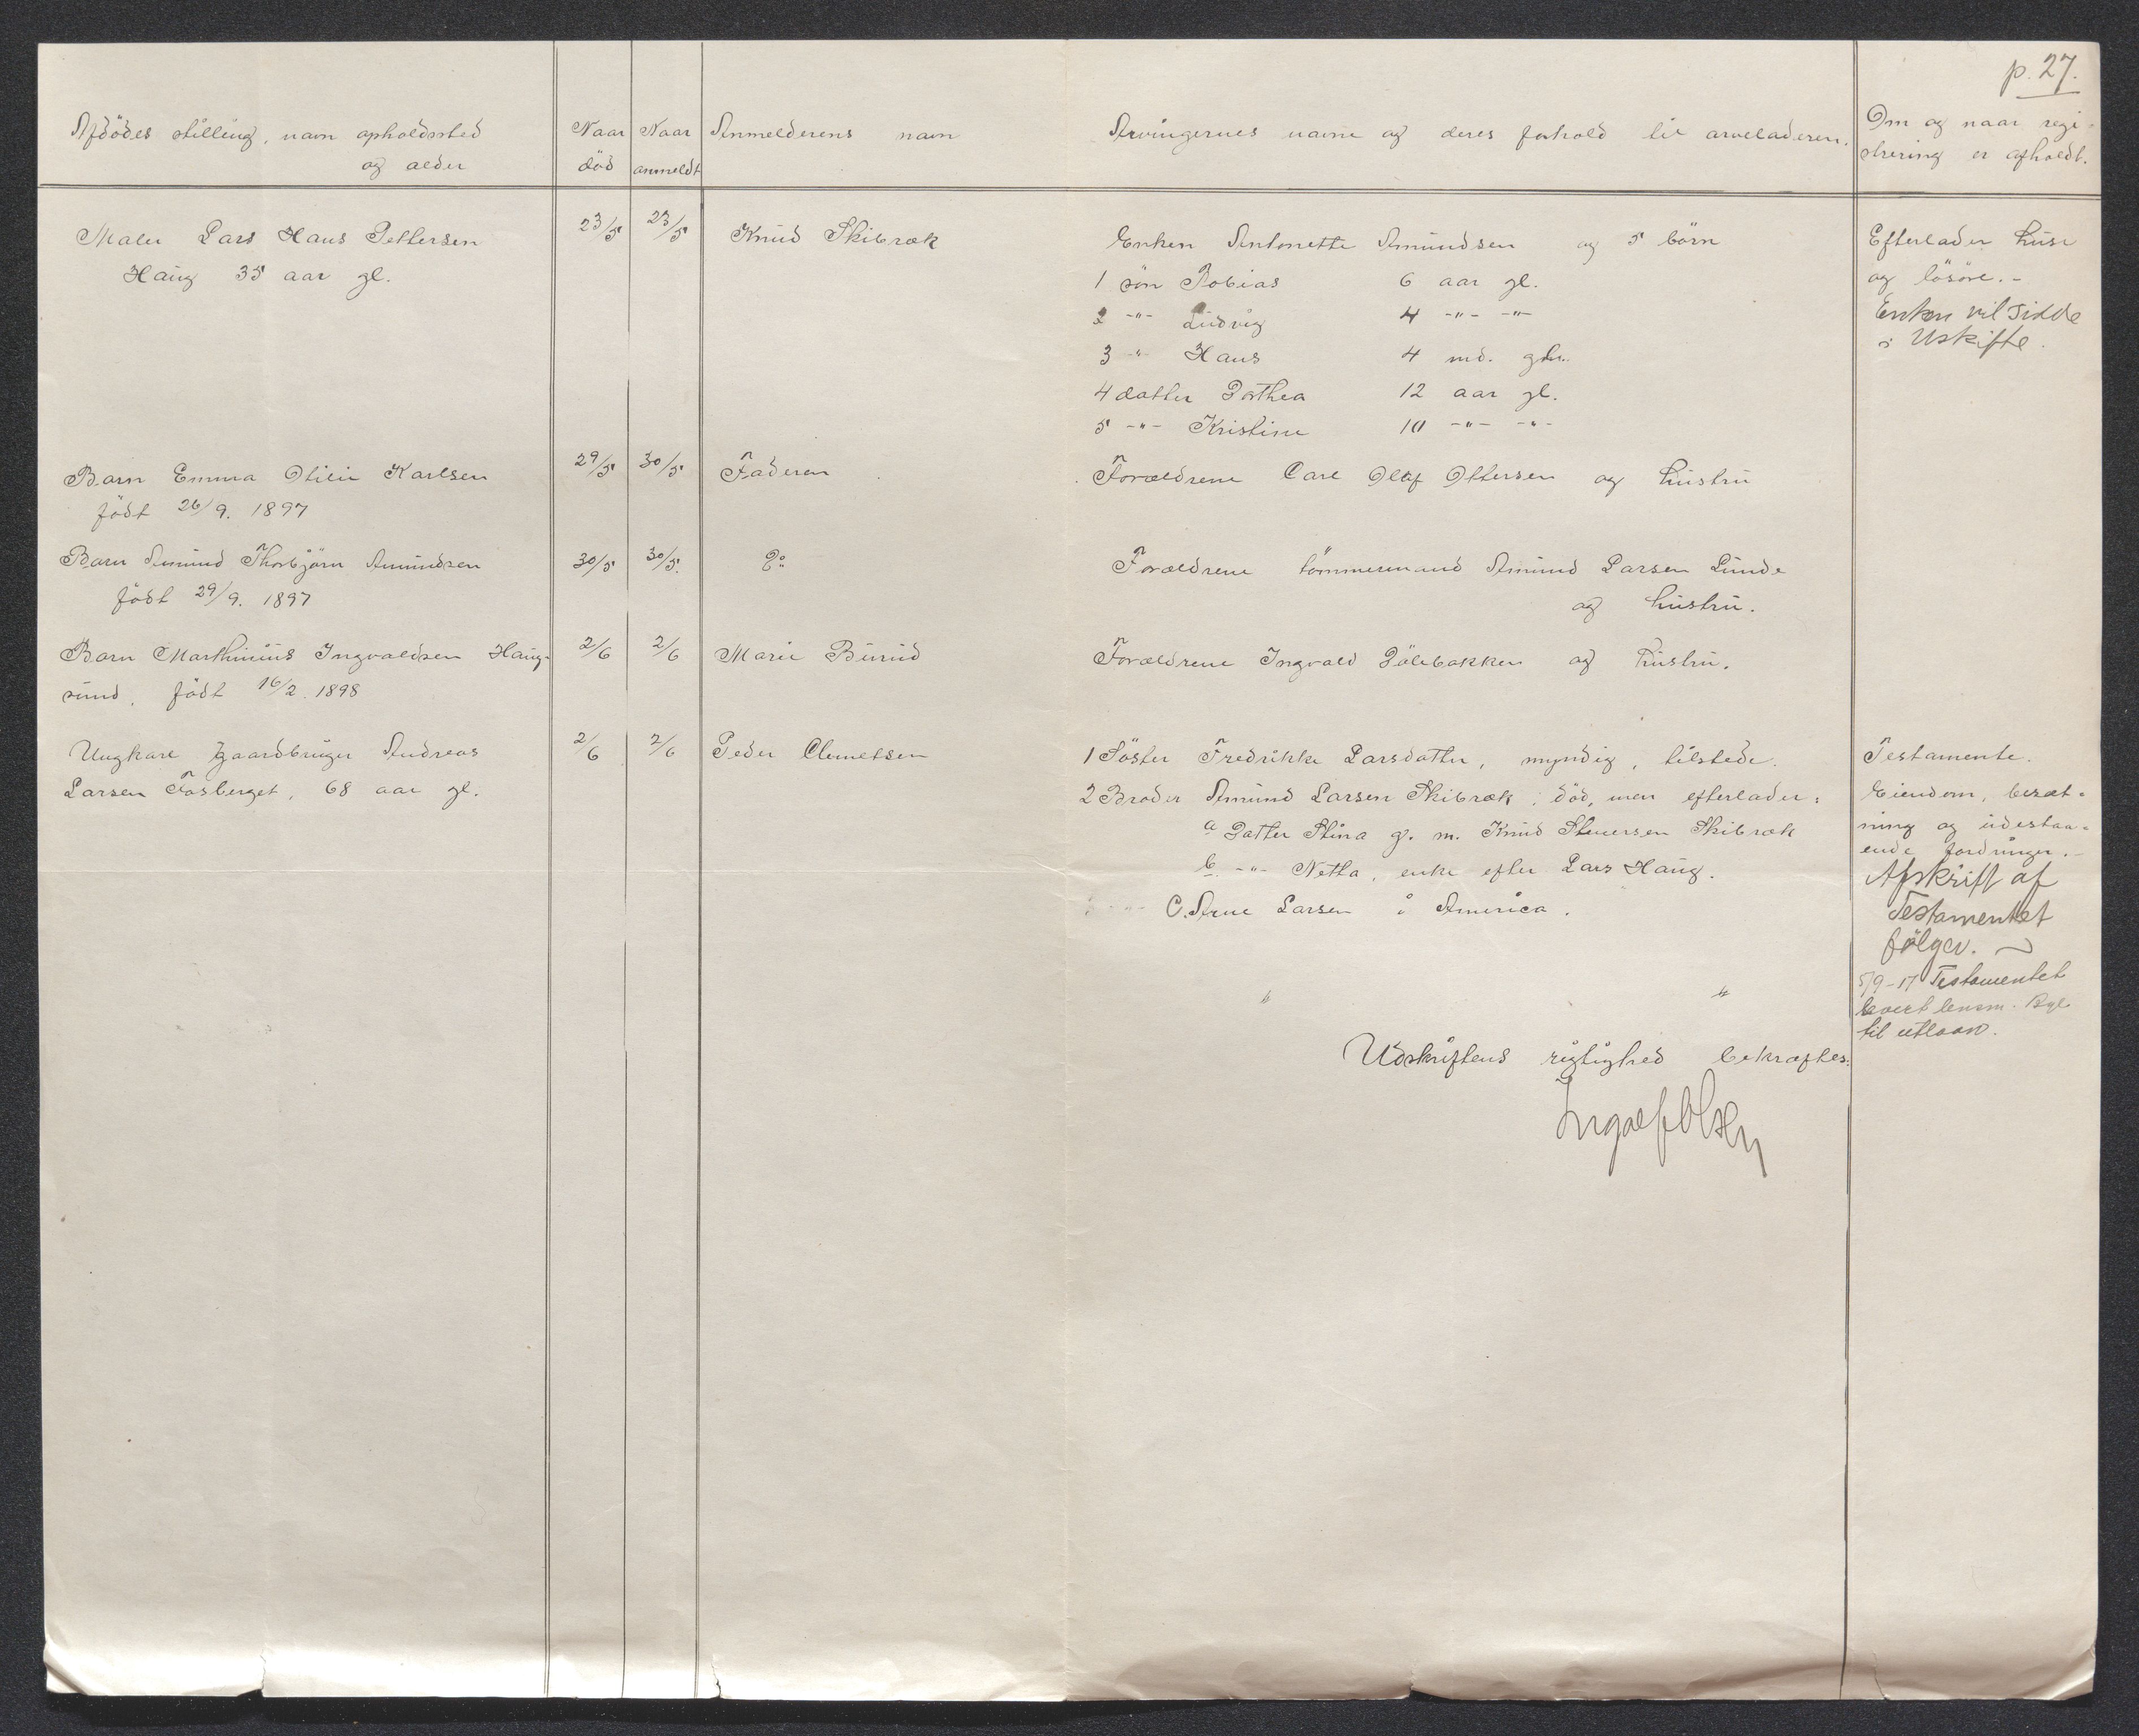 p. 27.
Afdödes stilling, navn opholdssted
og alder
Naar
död
Naar
anmeldt
Anmelderens navn
Arvingernes navne og deres forhold til arveladeren.
Om og naar regi-
strering er afholdt.
Maler Lars Hans Pettersen
Haug 35 aar gl.
23/5
23/5
Knud Skibræk
Enken Antonette Amundsen og 5 börn
1 sön Tobias 6 aar gl.
2 -"- Ludvig 4 -"- -"-
3 -"- Hans 4 md. gl.
4 datter Dorthea 12 aar gl.
5 -"- Kristine 10 -"- -"-
Efterlader huse
og lösöre.-
Enken vil sidde
i Uskifte.
Barn Emma Otilie Karlsen
födt 26/9. 1897
29/5
30/5
Faderen
Forældrene Carl Olaf Ottersen og hustru
Barn Amund Thorbjörn Amundsen
födt 29/9. 1897
30/5
30/5.
Do
Forældrene tömmermand Amund Larsen Lunde
og hustru.
Barn Marthinius Ingvaldsen Haug-
sund, födt 16/2. 1898
2/6
2/6
Marie Burud
Forældrene Ingvald Dölebakken og hustru.
Ungkarl gaardbruger Andreas
Larsen Fosberget, 68 aar gl.
2/6
2/6
Peder Clemetsen
1 Söster Fredrikke Larsdatter, myndig, tilstede.
2 Broder Amund Larsen Skibræk; död, men efterlader:
a Datter Stina g. m. Knud Steversen Skibræk
b. -"- Netta, enke efter Lars Haug.
C. Arne Larsen i America.
Testamente.
Eiendom, besæt-
ning og udestaa-
ende fordringer.-
Afskrift af
Testamentet
fölger.
5/9-17 Testamentet
levert lensm.
til utlaan.
Udskriftens rigtighed bekræftes:
Ingolf Olsen